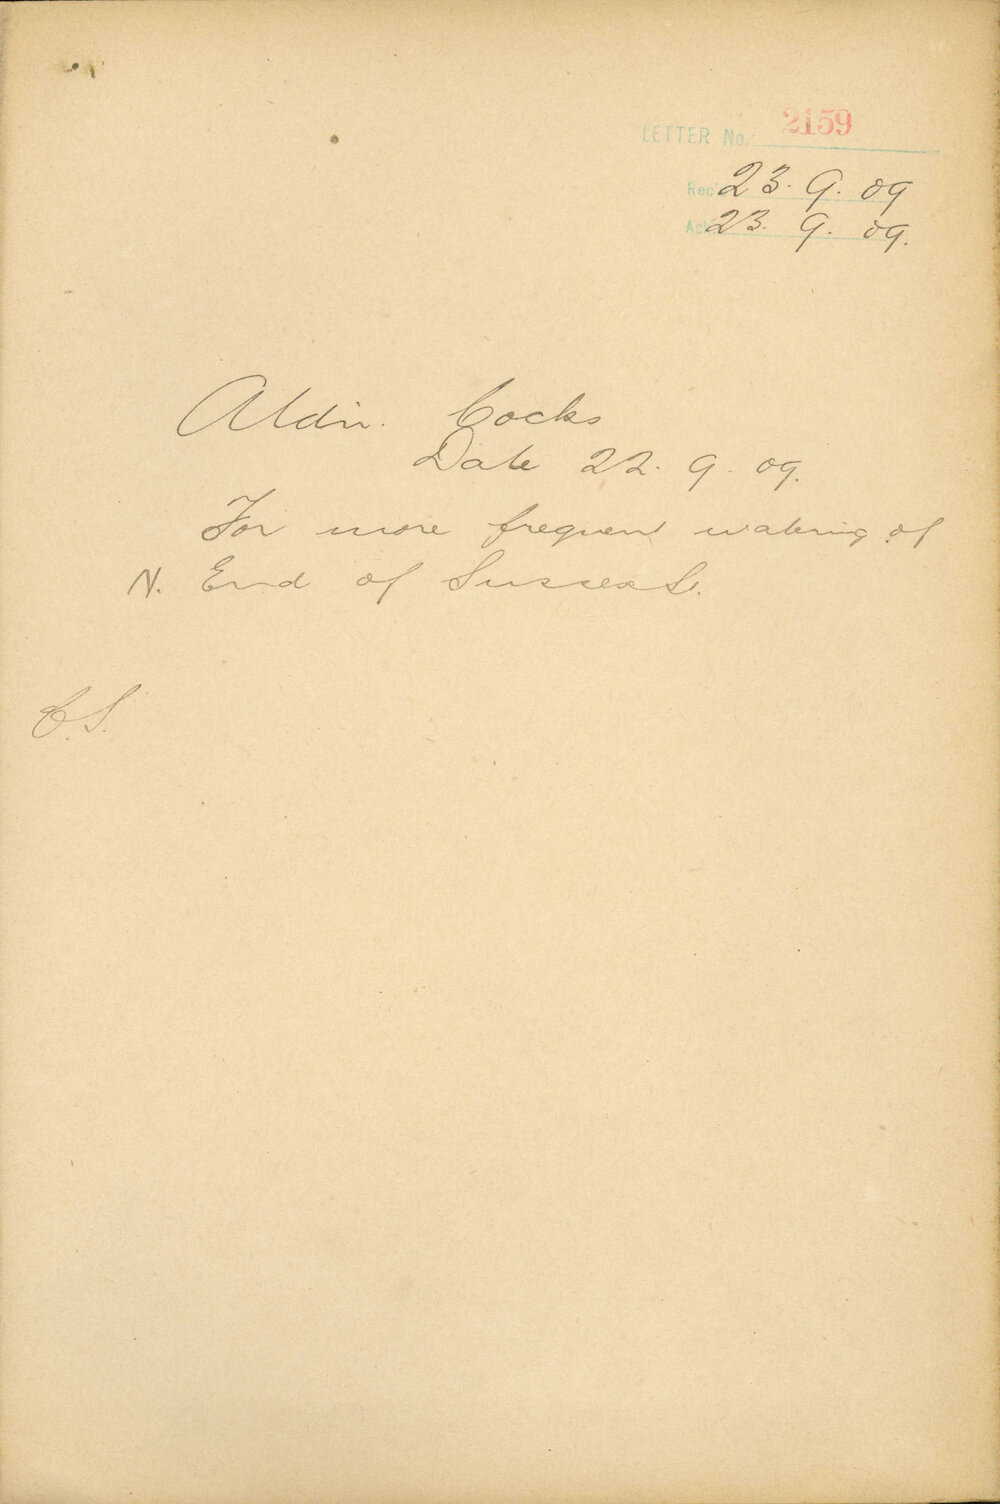 LETTER No. 2159
Rec'd 23. 9. 09
Ack 23. 9. 09.
Aldn. Cocks
Date 22. 9. 09.
For more frequent watering of
N. End of Sussex S.
C.S.